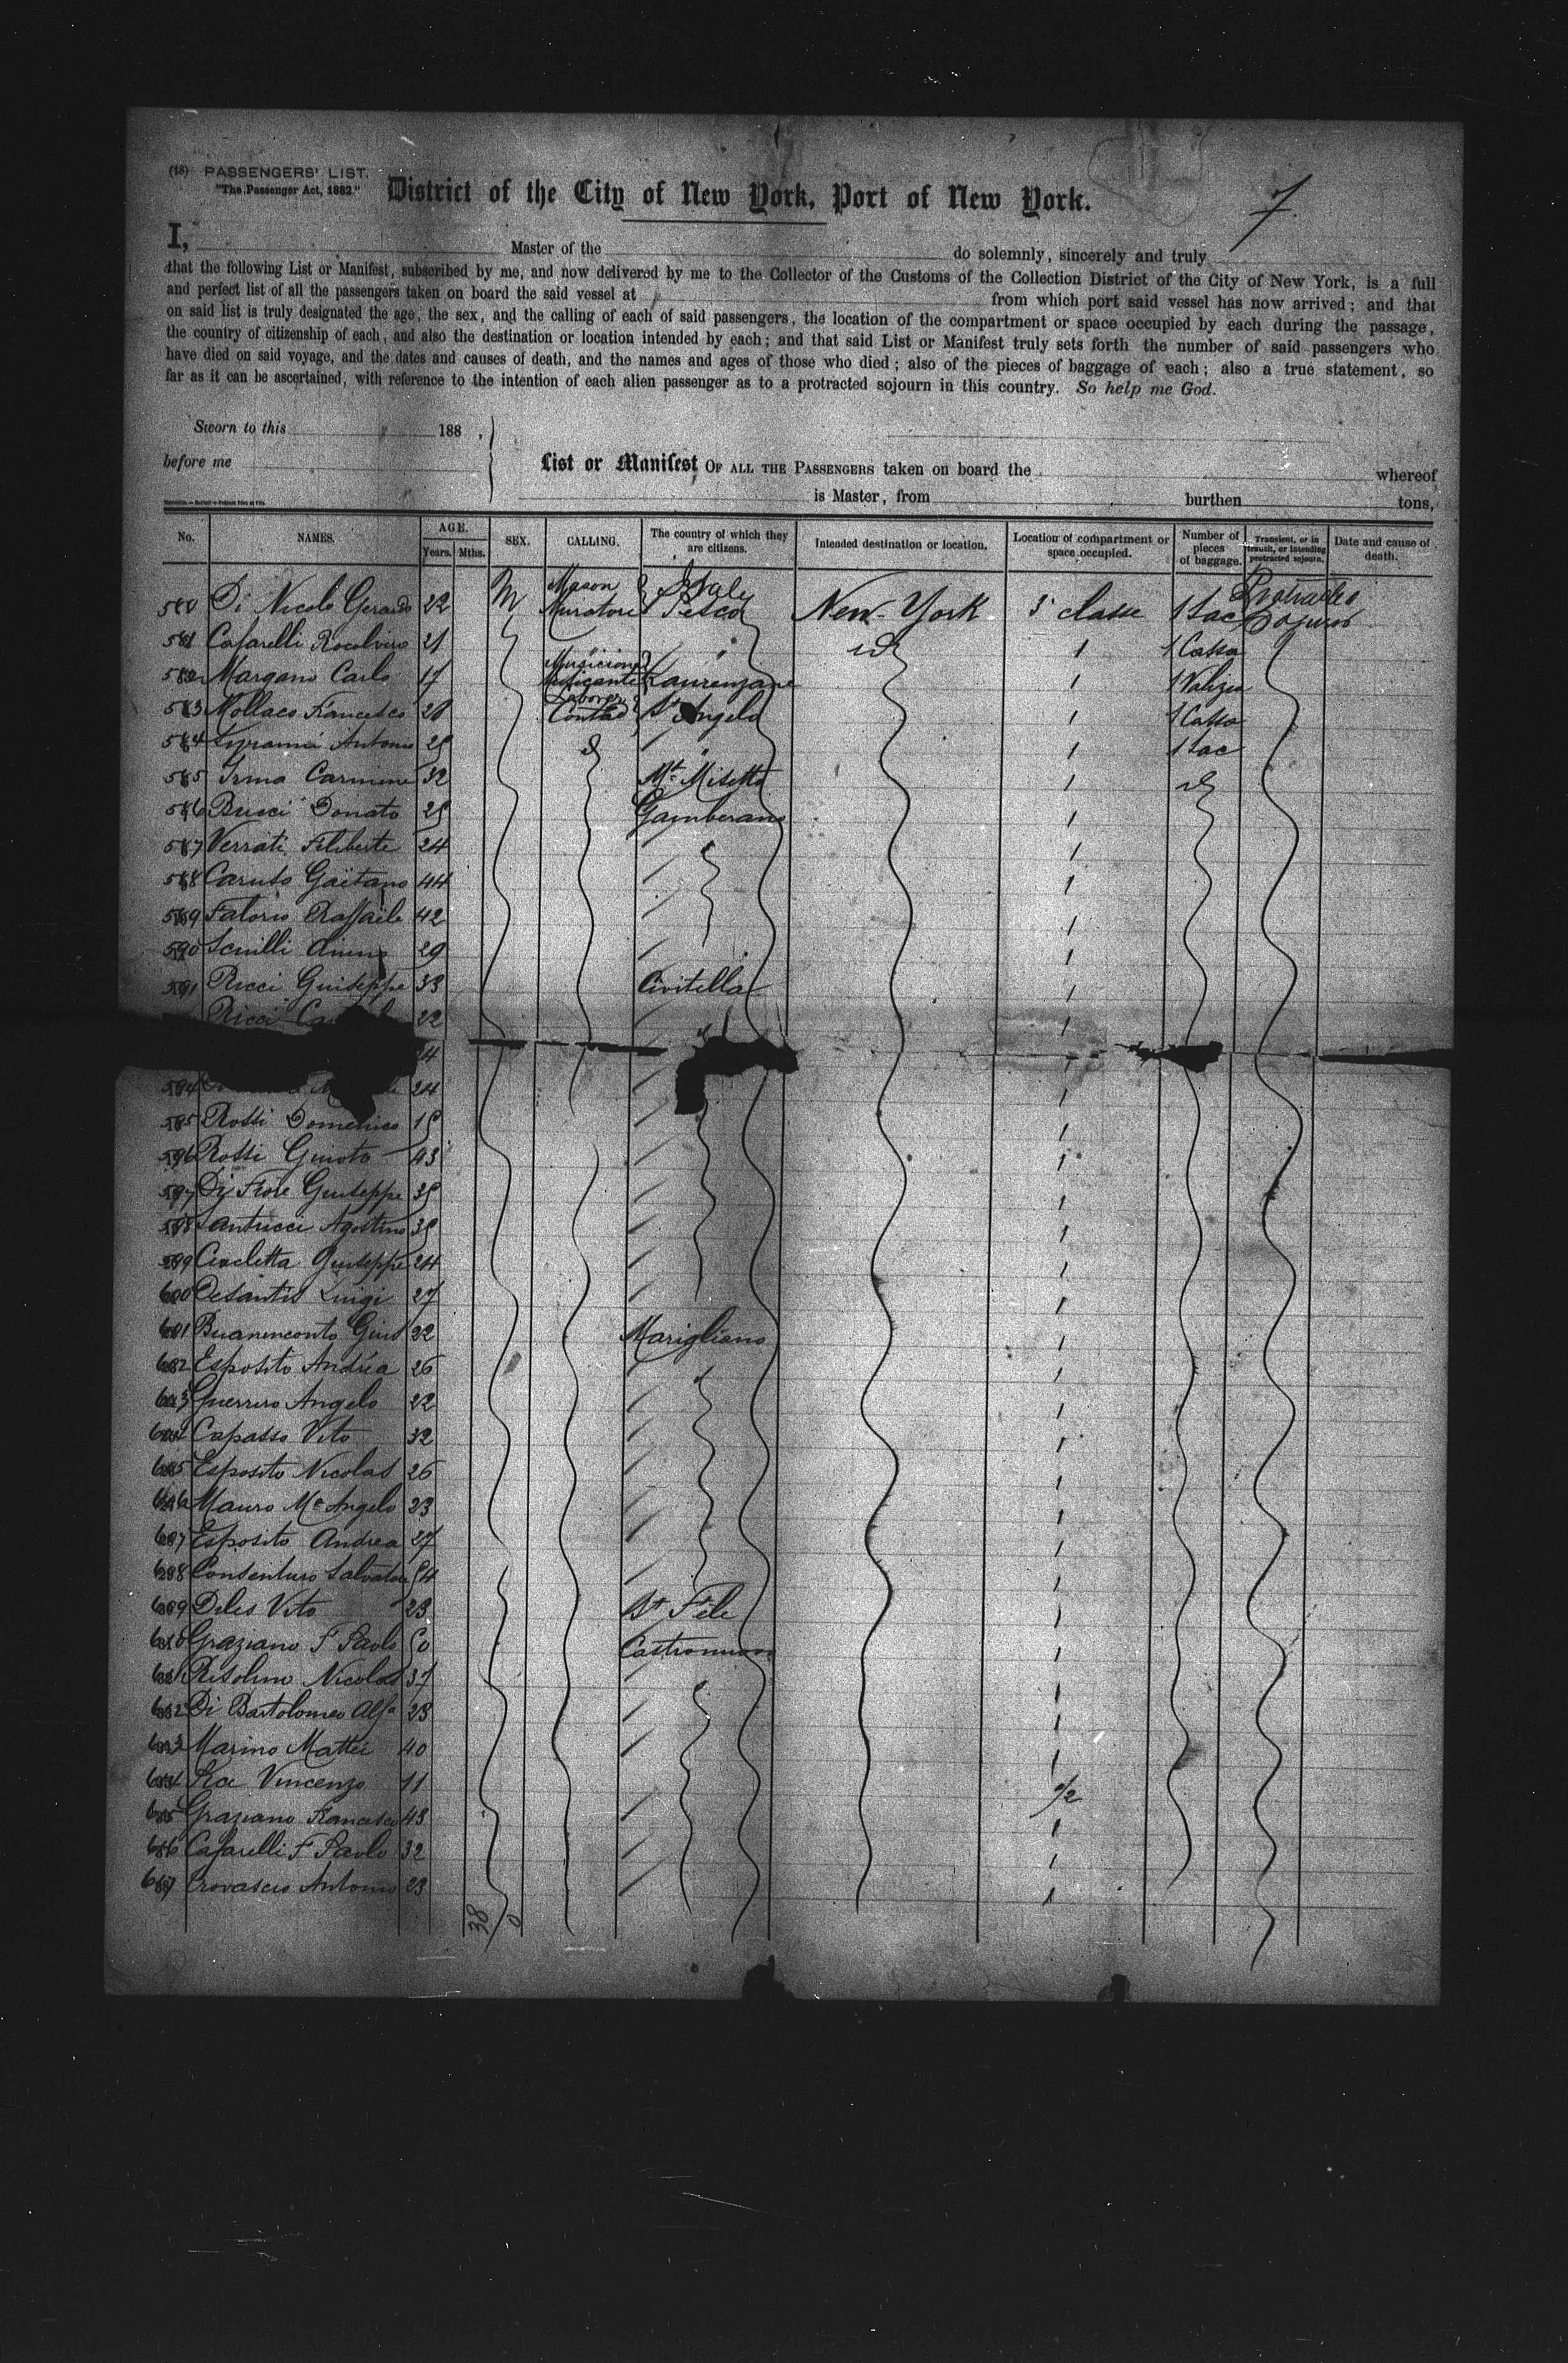 (18) PASSENGERS' LIST.
"The Passenger Act, 1882."
District of the City of New York, Port of New York.
7
I, Master of the do solemnly, sincerely and truly
that the following List or Manifest, subscribed by me, and now delivered by me to the Collector of the Customs of the Collection District of the City of New York, is a full
and perfect list of all the passengers taken on board the said vessel at from which port said vessel has now arrived; and that
on said list is truly designated the age, the sex, and the calling of each of said passengers, the location of the compartment or space occupied by each during the passage,
the country of citizenship of each, and also the destination or location intended by each; and that said List or Manifest truly sets forth the number of said passengers who
have died on said voyage, and the dates and causes of death, and the names and ages of those who died; also of the pieces of baggage of each; also a true statement, so
far as it can be ascertained, with reference to the intention of each alien passenger as to a protracted sojourn in this country. So help me God.
Sworn to this 188 ,
before me
List or Manifest OF ALL THE PASSENGERS taken on board the whereof
is Master, from burthen tons,
No. NAMES. AGE. Years. Mths. SEX. CALLING. The country of which they are citizens. Intended destination or location. Location of compartment or space occupied. Number of pieces of baggage. Transient, or in transit, or intending protracted sojourn. Date and cause of death.
Mason Italy Protracted
580 Di Nicola Gerardo 22 M Muratore Pesco New-York 3e classe 1 Sac Sojurn
581 Cafarelli 21 " id 1 1 Cassa
Musicion
582 Margano Carlo 17 Musicante Laurenzane 1 1 Valizia
Laborer
583 Mollaco Francesco 28 Contad St Angelo 1 1 Cassa
584 Antonio 25 " 1 1 Sac
585 Irma Carmine 32 Mt Misetto 1 id
586 Bucci Donato 25 Gamberano 1
587 Verrati Filiberte 24 1
588 Caruso Gaëtano 44 1
589 Fatoris Raffaile 42 1
590 Scuilli 29 1
591 Ricci Guiseppe 33 Civitella 1
Ricci 22 1
24
594 24 1
595 Rossi Domenico 15 1
596 Rossi Guisto 43 1
597 Di Fiore Guiseppe 35 1
598 Santucci Agostino 35 1
599 Ciacletta Guiseppe 24 1
600 DeSantis Luigi 27 1
601 Buonincontro Gius 22 Marigliano 1
602 Esposito Andréa 26 1
603 Guerrero Angelo 22 1
604 Capasso Vito 32 1
605 Esposito Nicolas 26 1
606 Mauro Me Angelo 23 1
607 Esposito Andrea 27 1
608 Consenturo Salvatore 54 1
609 Deles Vito 23 St Fele 1
610 Graziano F Paolo 50 1
611 Risolino Nicolas 37 1
612 Di Bartolomeo Alfo 23 1
613 Marino Mattei 40 1
614 Vincenzo 11 1/2
615 Graziano Francesco 43 1
616 Cafarelli F Paolo 32 1
617 Crovascio Antonio 23 1
38 0